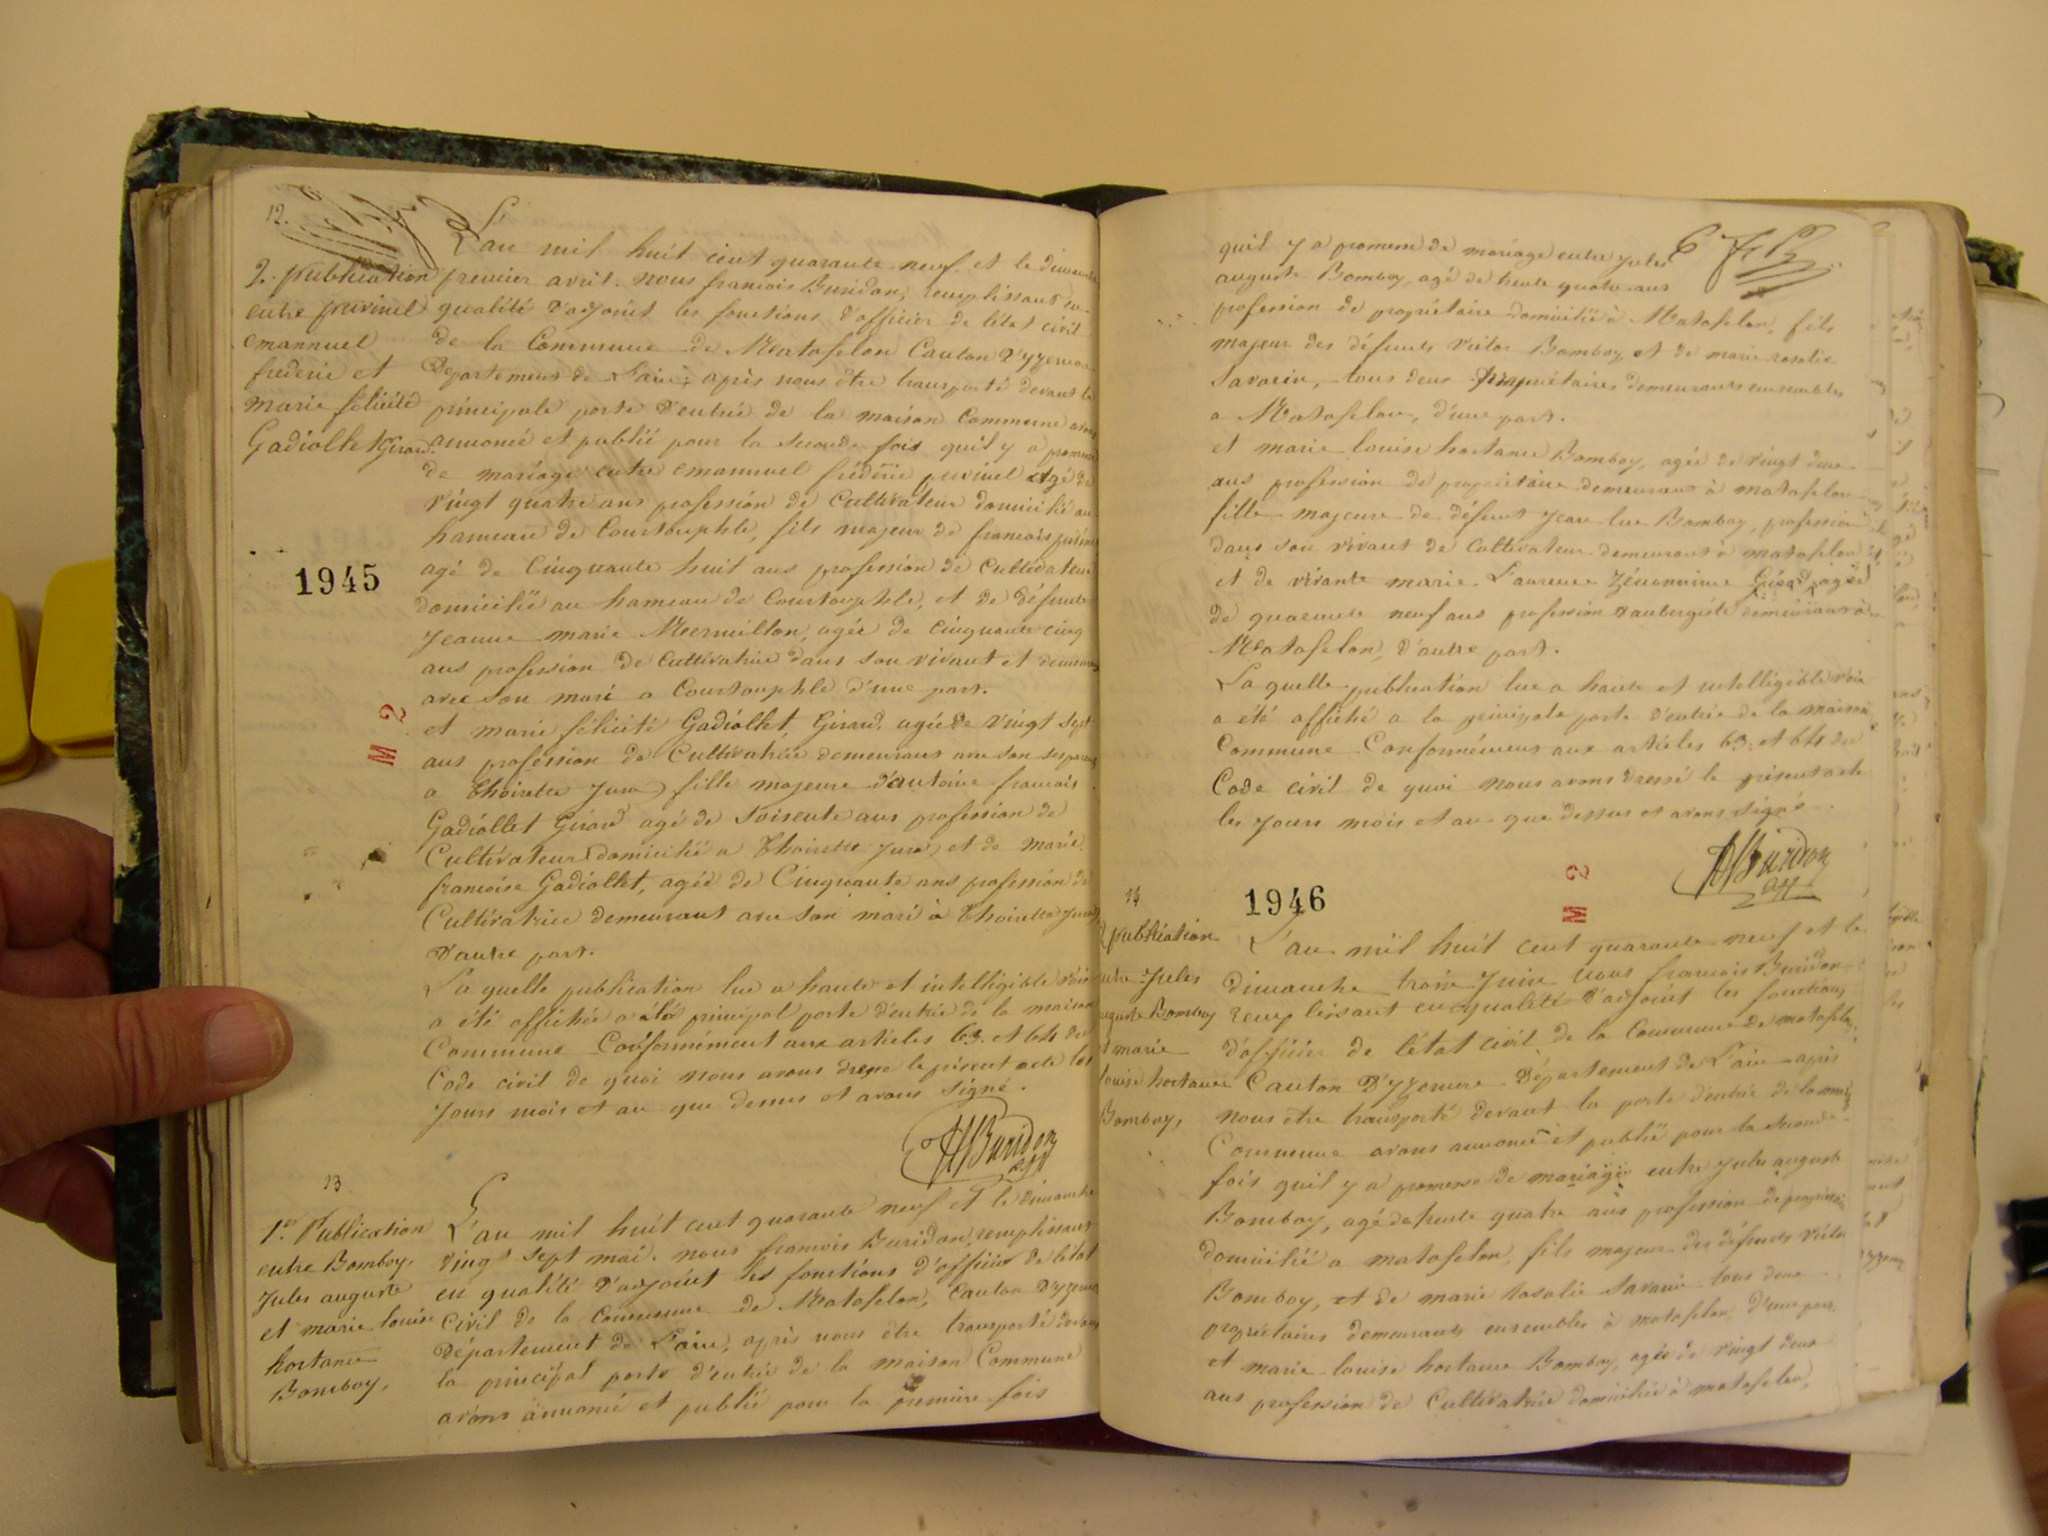 12.
2. publication
entre privinel
emannuel
frederic et
marie félicité
Gadiollet Girard.
L'an mil huit cent quarante neuf et le dimanche
premier avril. nous francois Buridon, remplissant en
qualité d'adjoint les fonctions d'officier de l'état civil
de la Commune de Matafelon Canton d'yzernore
Département de L'ain, après nous être transporté devant la
principale porte d'entrée de la maison Commune avons
annoncé et publié pour la seconde fois qu'il y a promesse
de mariage entre emannuel frédéric privinel agé de
vingt quatre ans profession de Cultivateur domicilié au
hameau de Courtouphle, fils majeur de francois
agé de Cinquante huit ans profession de Cultivateur
domicilié au hameau de Courtouphle, et de défunte
Jeanne marie Mermillon, agée de cinquante cinq
ans profession de Cultivatrice dans son vivant et demeurant
avec son mari a Courtouphle d'une part.
et marie félicité Gadiollet Girard, agée de vingt sept
ans profession de Cultivatrice demeurant avec
a Thoirette Jura) fille majeure d'antoine francois
Gadiollet Girard agé de soisente ans profession de
Cultivateur domicilié a Thoirette Jura) et de marie
francoise Gadiollet, agée de Cinquante ans profession de
Cultivatrice demeurant avec son mari à Thoirette Jura)
D'autre part.
La quelle publication lue a haute et intelligible voix
a été affichée a la principal porte d'entrée de la maison
Commune Conformément aux articles 63. et 64 du
Code civil de quoi nous avons dressé le présent acte les
Jours mois et an que dessus et avons signé.
1945
M 2
Buridon
adj
13
1.er Publication
entre Bomboy,
Jules auguste
et marie louise
hortance
Bomboy,
L'an mil huit cent quarante neuf et le dimanche
vingt sept mai. nous francois Buridon, remplissant
en qualité d'adjoint les fonctions d'officier de l'état
Civil de la Commune de Matafelon, Canton d'yzernore
Département de L'ain, après nous être transporté devant
la principal porte d'entrée de la maison Commune
avons annoncé et publié pour la premiere fois
quil y a promesse de mariage entre Jules
auguste Bomboy, agé de trente quatre ans
profession de propriétaire domicilié à Matafelon, fils
majeur des défunts Victor Bomboy et de marie rosalie
Savarin, tous deux propriétaires demeurants ensembles
a Matafelon, d'une part.
et marie louise hortance Bomboy, agée de vingt deux
ans profession de propriétaire demeurant à matafelon
fille majeure de défunt Jean luc Bomboy, profession
dans son vivant de Cultivateur demeurant à matafelon
et de vivante marie Laurence Girard, agée
de quarante neuf ans profession d'aubergiste demeurant à
Matafelon, d'autre part.
La quelle publication lue a haute et intelligible voix
a été affiché a la principale porte d'entrée de la maison
Commune Conformément aux articles 63. et 64 du
Code civil de quoi nous avons dressé le présent acte
les Jours mois et an que dessus et avons signé.
Buridon
adj
M 2
1946
14
2 publication
entre Jules
auguste Bomboy
et marie
louise hortance
Bomboy,
L'an mil huit cent quarante neuf et le
dimanche trois Juin nous francois Buridon
remplissant en qualité d'adjoint les fonctions
d'officier de l'état civil de la Commune de matafelon,
Canton D'yzernore Département de L'ain après
nous être transporté devant la porte d'entrée de la maison
Commune avons annoncé et publié pour la seconde
fois quil y a promesse de mariage entre Jules auguste
Bomboy, agé de trente quatre ans profession de propriétaire
domicilié a matafelon, fils majeur des défunts Victor
Bomboy, et de marie rosalie Savarin tous deux
propriétaires demeurants ensembles à matafelon, d'une part.
et marie louise hortance Bomboy, agée de vingt deux
ans profession de Cultivatrice domiciliée à matafelon,